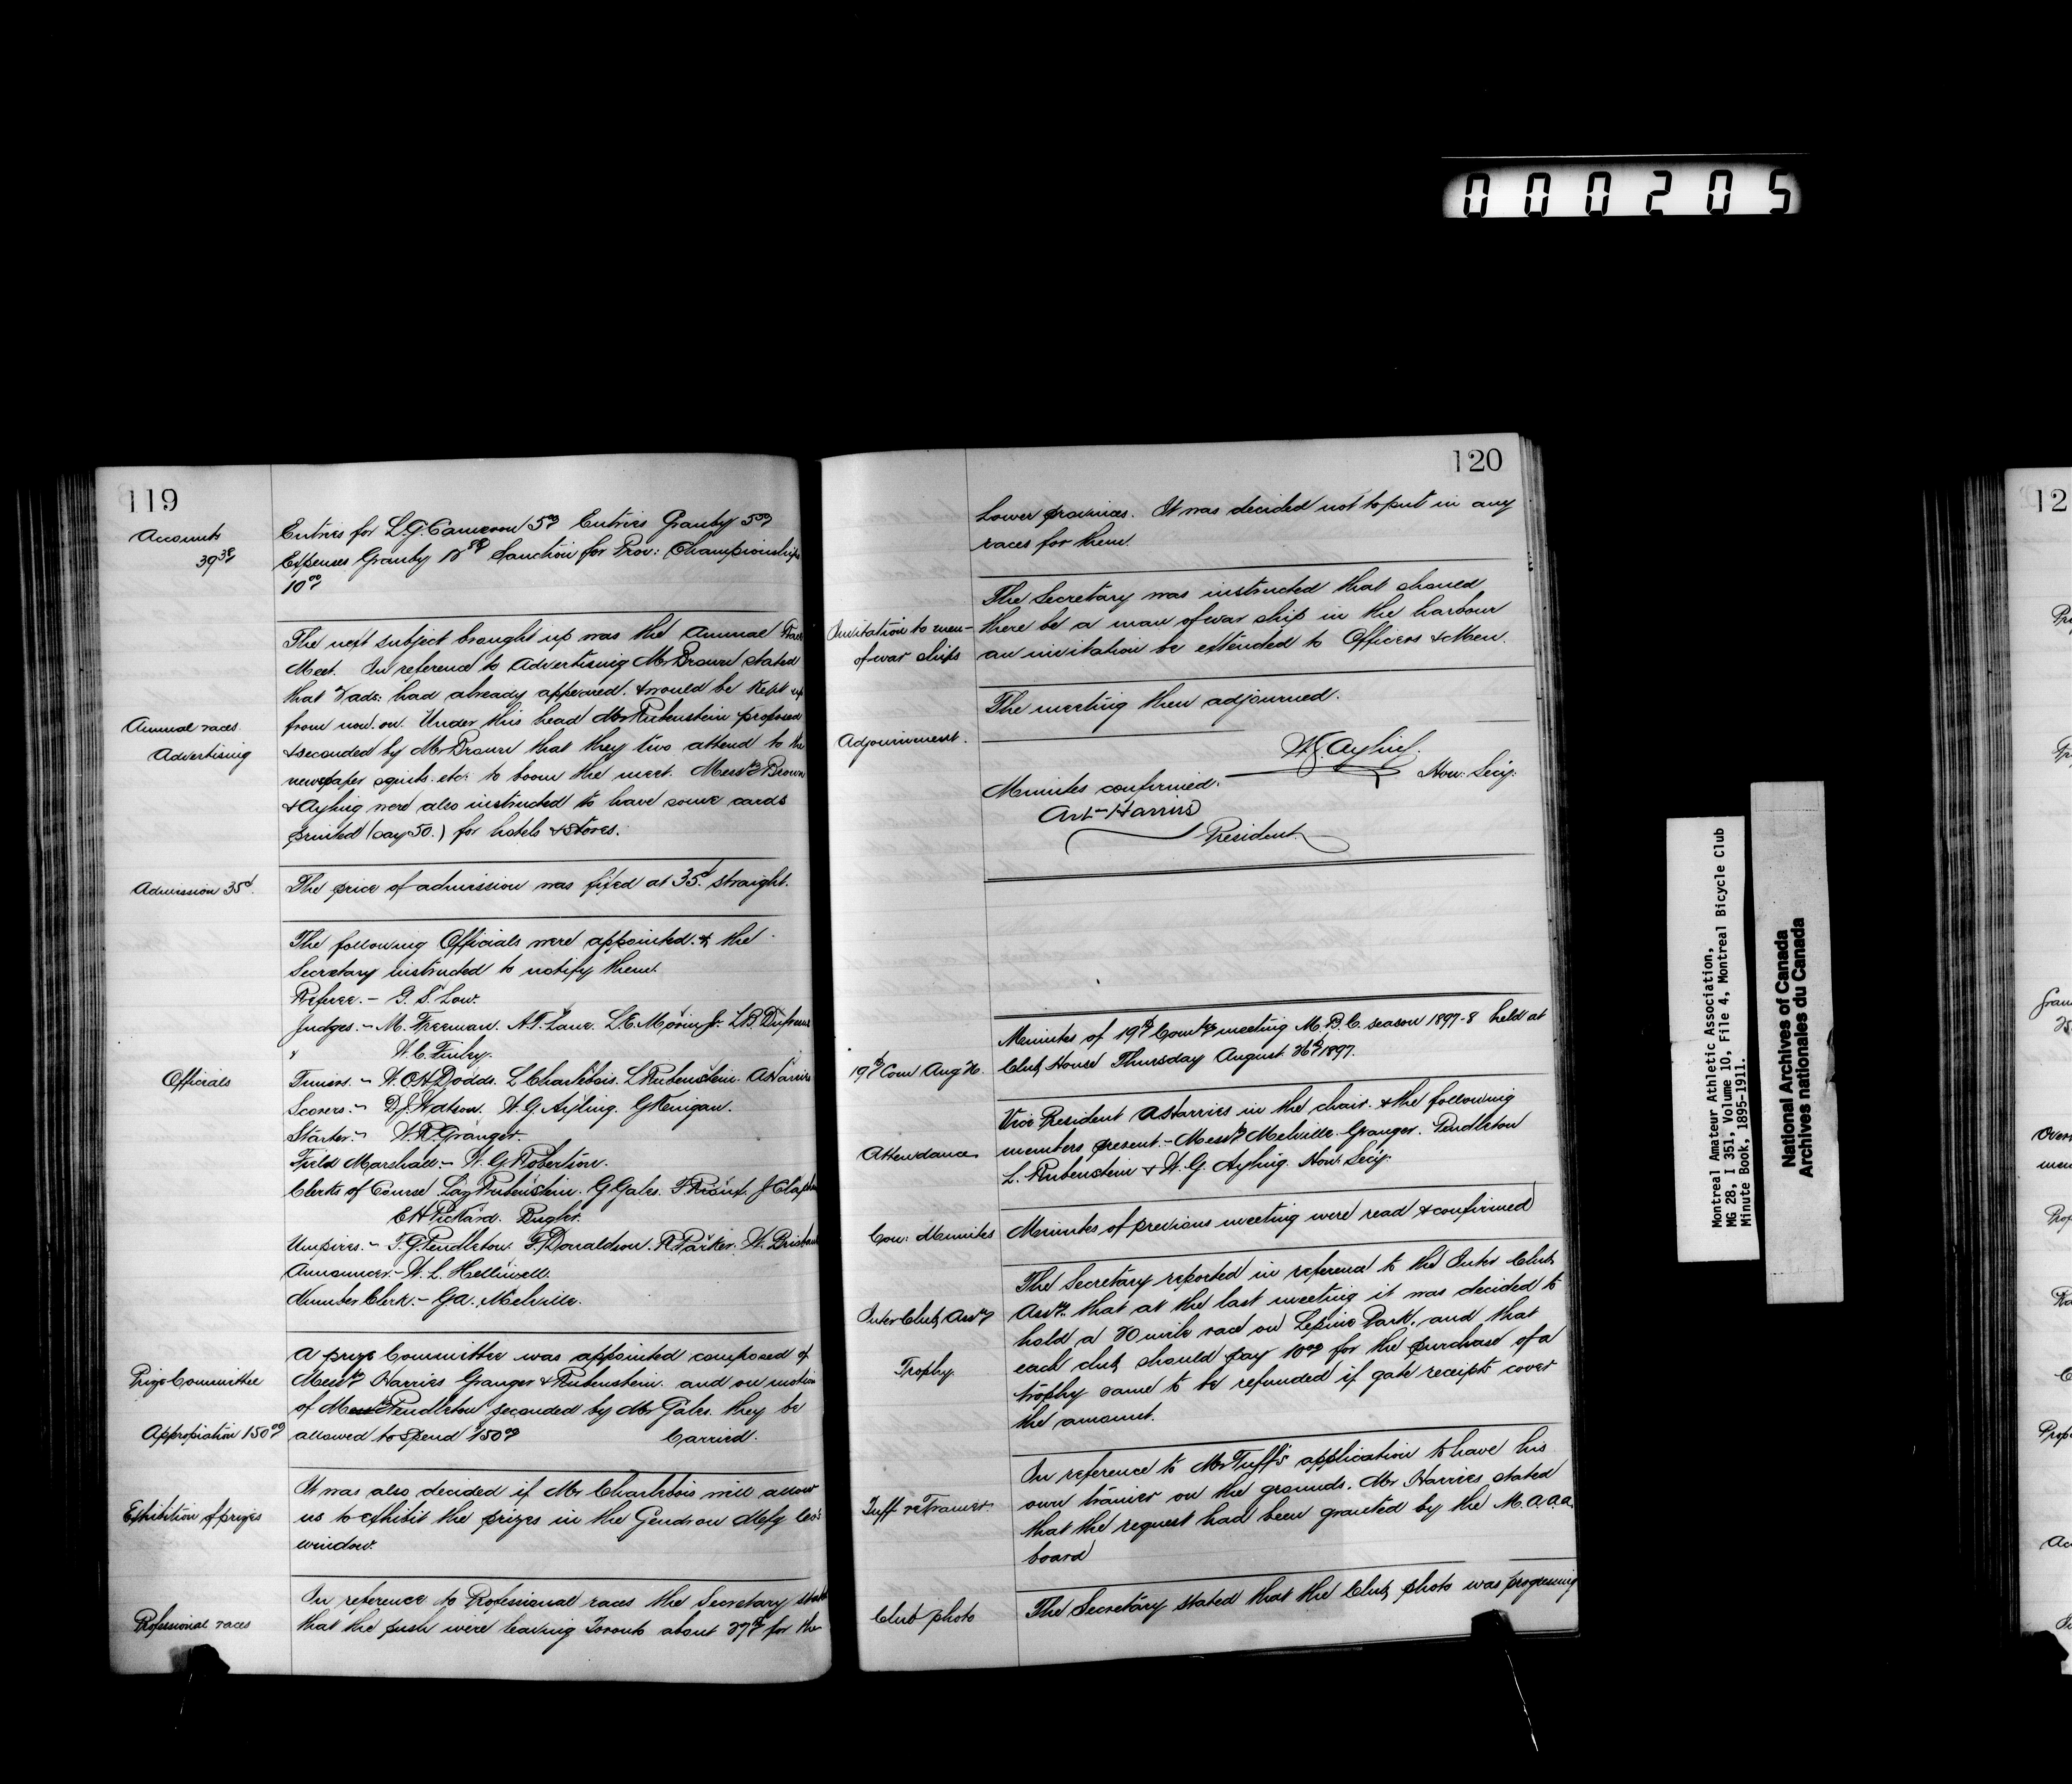 000205
119
Accounts
39 38
Entries for L.G. Cameron 5 00 Entries Granby 5 00
Expenses Granby Sanction for Prov: Championships
10 00
The next subject brought up was the Annual Race
Meet. In reference to Advertising Mr Brown stated
that ads: had already appeared. & would be kept up
Annual races.
Advertising
from now. on. Under this head Mr Rubenstein proposed
& seconded by Mr Brown that they two attend to the
newspaper squibs. etc: to boom the meet. Messrs Brown
& Ayling were also instructed to have some cards
printed (say 50.) for hotels & stores.
Admission 35¢.
The price of admission was fixed at 35¢. straight.
The following Officials were appointed. & the
Secretary instructed to notify them.
Referee.- G. S. Low.
Judges.- M. Freeman. A.T. Lane. L.E. Morin Jr. L.B. Dufresne
W.C. Finley.
Officials
Timers.- W.O.H. Dodds. L Charlebois. L Rubenstein. A Harries
Scorers.- D.J. Watson. W.G. Ayling. G Kerigan.
Starter.- W.R. Granger.
Field Marshall.- W. G. Robertson.
Clerks of Course Louy Rubenstein. G Gales. F. J Clapham
E H Pickard. Rugler.
Umpires.- F.G. Pendleton. F. Donaldson. R. Parker. W. Brisbane
Announcer.- W. L. Helliwell.
Number Clerk.- G A. Melville.
A prize Committee was appointed composed of
Prize Committee
Messrs Harries Granger & Rubenstein. and on motion
of Messrs Pendleton seconded by Mr Gales. they be
Appropiation 150 00
allowed to spend $150 00 Carried.
It was also decided if Mr Charlebois will allow
Exhibition of prizes
us to exhibit the prizes in the Gendron Mnfg Co's
window.
In reference to Professional races the Secretary stated
Professional races
that the push were leaving Toronto about 27th for the
120
Lower provinces. It was decided not to put in any
races for them.
The Secretary was instructed that should
Invitation to men-
of war ships
there be a man of war ship in the harbour
an invitation be extended to Officers & Men.
The meeting then adjourned.
Adjournment.
W.G. Ayling.
Hon: Secy:
Minutes confirmed.
Art Harries
President.
Minutes of 19th Comtee meeting M.B.C. season 1897-8 held at
19th Com Aug 26.
Club House Thursday August 26th 1897.
Vice President A Harries in the chair. & the following
Attendance
members present.- Messrs Melville. Granger. Pendleton
L. Rubenstein & W.G. Ayling. Hon: Secy:
Con: Minutes
Minutes of previous meeting were read & confirmed
The Secretary reported in reference to the Inter Club
Inter Club Assn
Assn. that at the last meeting it was decided to
hold a 20 mile race on Lepine Park, and that
Trophy.
each club should pay 10 00 for the purchase of a
trophy same to be refunded if gate receipts cover
the amount.
In reference to Mr Tuff's application to have his
Tuff re Trainer.
own trainer on the grounds. Mr Harries stated
that the request had been granted by the M.A.A.A.
board
Club photo
The Secretary stated that the Club photo was progressing
Montreal Amateur Athletic Association,
MG 28, I 351, Volume 10, File 4, Montreal Bicycle Club
Minute Book, 1895-1911.
National Archives of Canada
Archives nationales du Canada
12